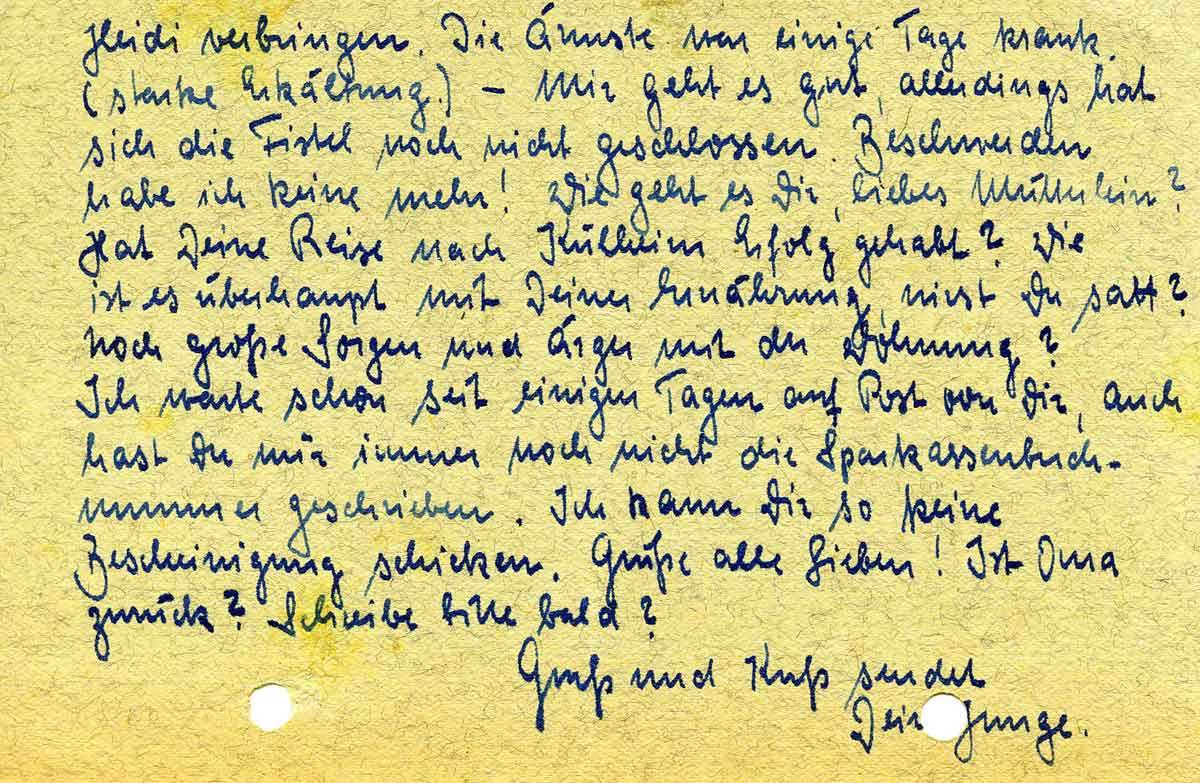 Heidi verbringen. Die Ärmste war einige Tage krank
(starke Erkältung.) – Mir geht es gut, allerdings hat
sich die Fistel noch nicht geschlossen. Beschwerden
habe ich keine mehr! Wie geht es Dir, liebes Mütterlein?
Hat Deine Reise nach Külheim Erfolg gehabt? Wie
ist es überhaupt mit Deiner Ernährung, wirst Du satt?
Noch große Sorgen und Ärger mit der Wohnung?
Ich warte schon seit einigen Tagen auf Post von Dir, auch
hast Du mir immer noch nicht die Sparkassenbuch-
nummer geschrieben. Ich kann Dir so keine
Bescheinigung schicken. Grüße alle Lieben! Ist Oma
zurück? Schreibe bitte bald?
Gruß und Kuß sendet
Dein Junge.